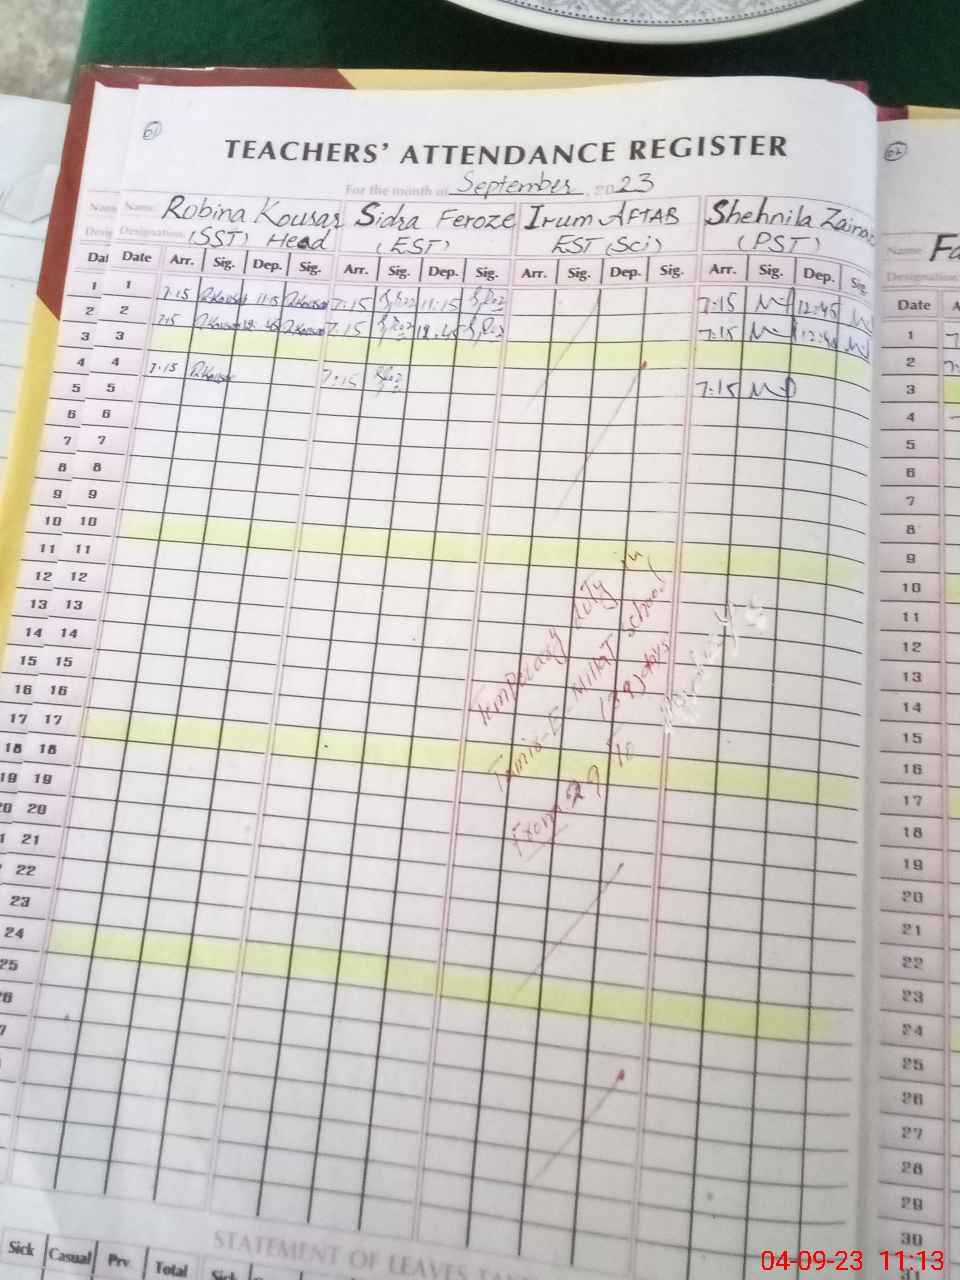 61
TEACHERS' ATTENDANCE REGISTER
For the month of September, 2023
Name: Robina Kousar Sidra Feroze Irum AFTAB Shehnila Zainab
Designation: (SST) Head (EST) EST (Sci) (PST)
Date Arr. Sig. Dep. Sig. Arr. Sig. Dep. Sig. Arr. Sig. Dep. Sig. Arr. Sig. Dep. Sig.
1 1 7:15 R.Kousar 11:15 R.Kousar 7:15 11:15 7:15 12:45
2 2 7:15 R.Kousar 12:45 R.Kousar 7:15 12:45 7:15 12:45
3 3
4 4 7:15 R.Kousar 7:15 7:15
5 5
6 6
7 7
8 8
9 9
10 10
11 11
12 12
13 13
14 14
15 15
16 16
17 17
18 18
19 19
20 20
21
22
23
24
25
Temporary duty in
Millat school
(89) days
From 29 To
STATEMENT OF LEAVES
Sick Casual Prv Total Sick
62
Name Fa
Designation
Date A
1
2
3
4
5
6
7
8
9
10
11
12
13
14
15
16
17
18
19
20
21
22
23
24
25
26
27
28
29
30
04-09-23 11:13